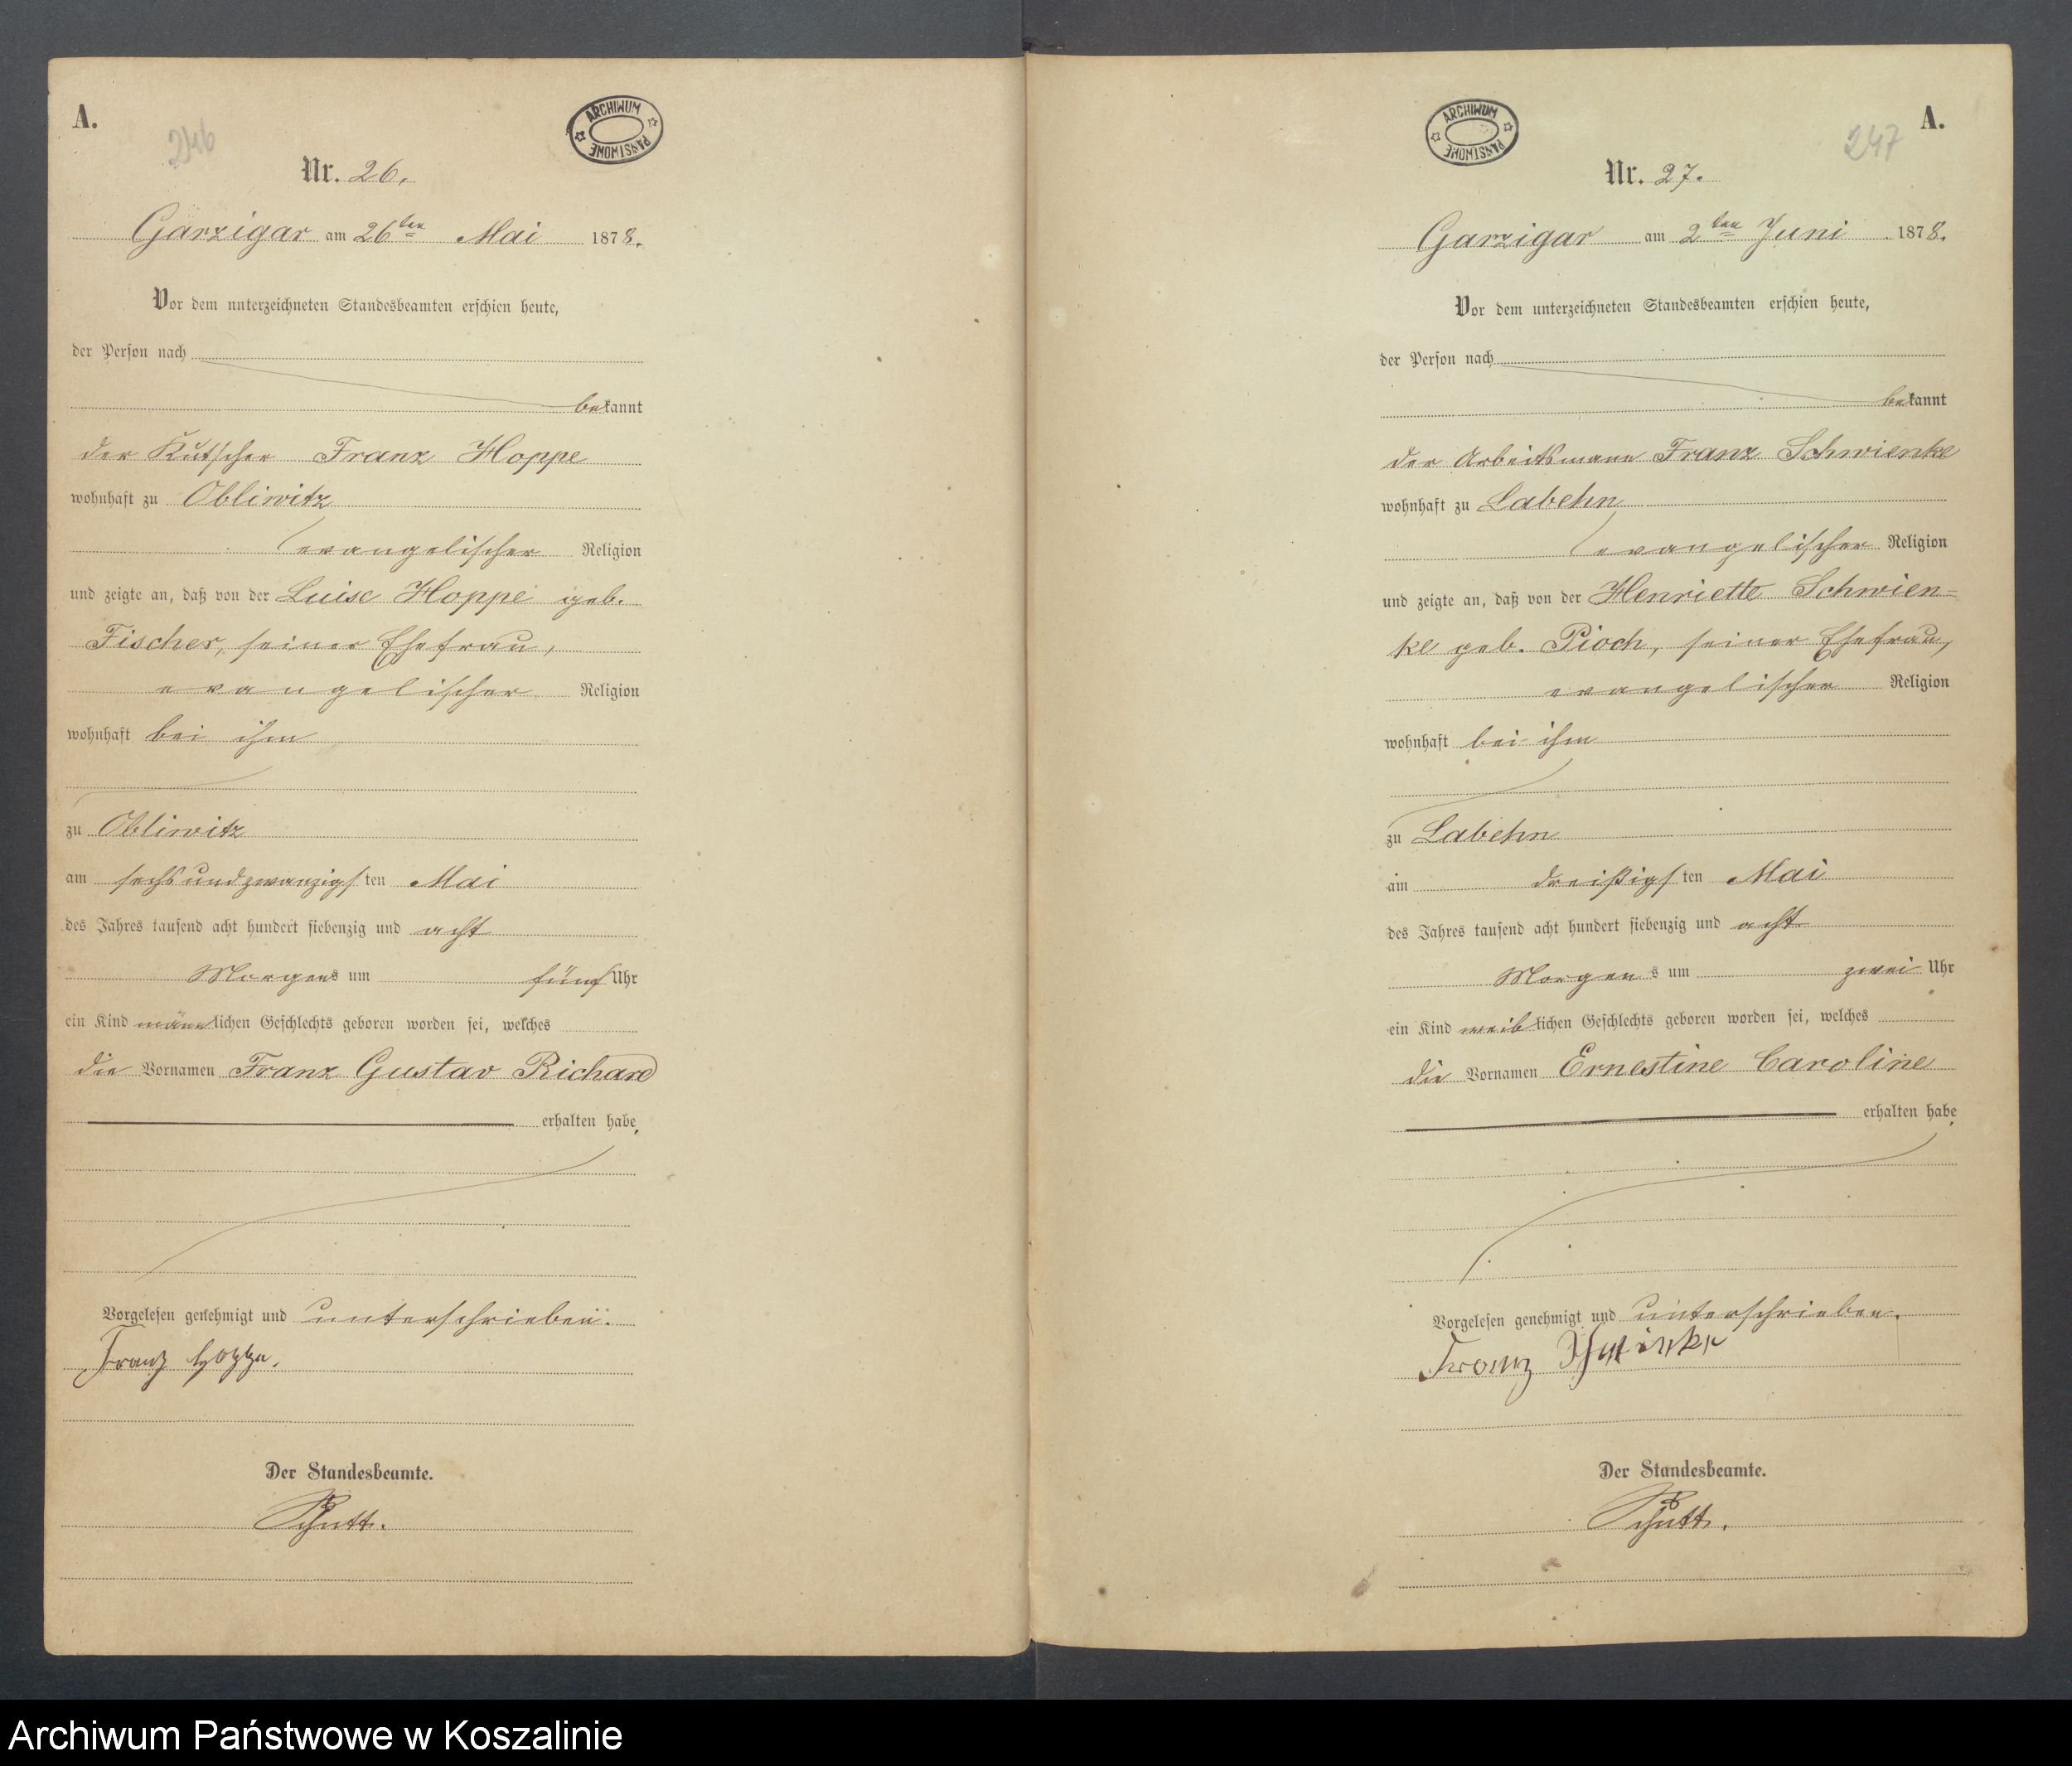 A.
246
ARCHIWUM PAŃSTWOWE
Nr. 26.
Garzigar am 26ten Mai 1878.
Vor dem unterzeichneten Standesbeamten erschien heute,
der Person nach
bekannt
der Kutscher Franz Hoppe
wohnhaft zu Obliwitz
evangelischer Religion
und zeigte an, daß von der Luise Hoppe geb.
Fischer, seiner Ehefrau,
evangelischer Religion
wohnhaft bei ihm
zu Obliwitz
am sechsundzwanzigsten Mai
des Jahres tausend acht hundert siebenzig und acht
Morgens um fünf Uhr
ein Kind männlichen Geschlechts geboren worden sei, welches
die Vornamen Franz Gustav Richard
erhalten habe.
Vorgelesen genehmigt und unterschrieben.
Franz Hoppe.
Der Standesbeamte.
Schutt.
A.
247
ARCHIWUM PAŃSTWOWE
Nr. 27.
Garzigar am 2ten Juni 1878.
Vor dem unterzeichneten Standesbeamten erschien heute,
der Person nach
bekannt
der Arbeitsmann Franz Schwienke
wohnhaft zu Labehn
evangelischer Religion
und zeigte an, daß von der Henriette Schwien=
ke geb. Pioch, seiner Ehefrau,
evangelischer Religion
wohnhaft bei ihm
zu Labehn
am dreißigsten Mai
des Jahres tausend acht hundert siebenzig und acht
Morgens um zwei Uhr
ein Kind weiblichen Geschlechts geboren worden sei, welches
die Vornamen Ernestine Caroline
erhalten habe.
Vorgelesen genehmigt und unterschrieben.
Franz Schwinke
Der Standesbeamte.
Schutt.
Archiwum Państwowe w Koszalinie